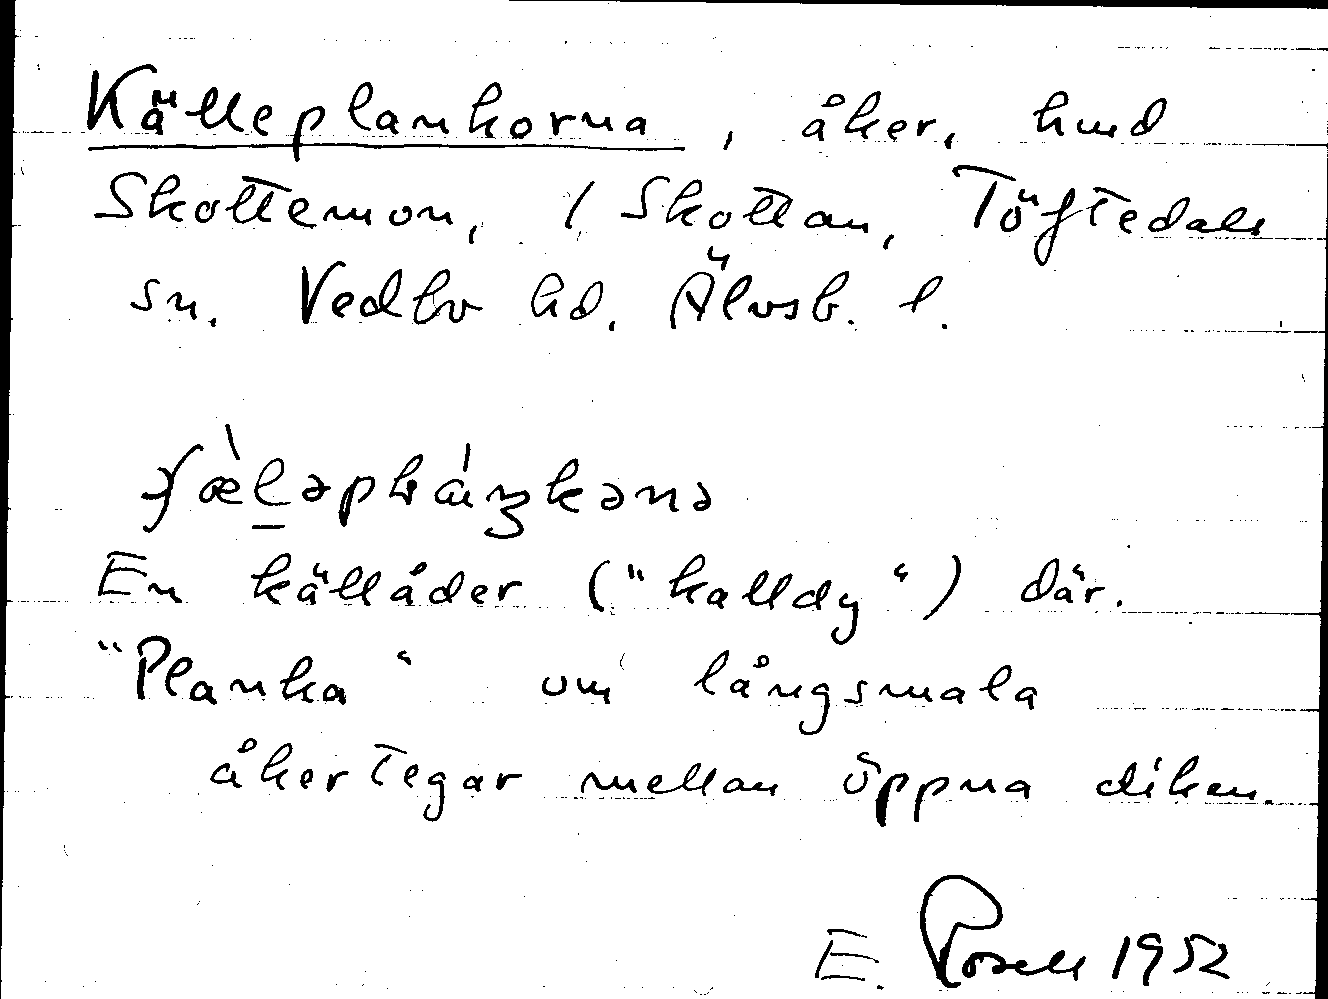 Källeplankorna, åker, hmd
Skottemon, / Skottan, Töftedals
sn. Vedbo hd. Älvsb. l.
En källåder ("kalldy") där.
"Planka" om långsmala
åkertegar mellan öppna diken.
E. Rosell 1952